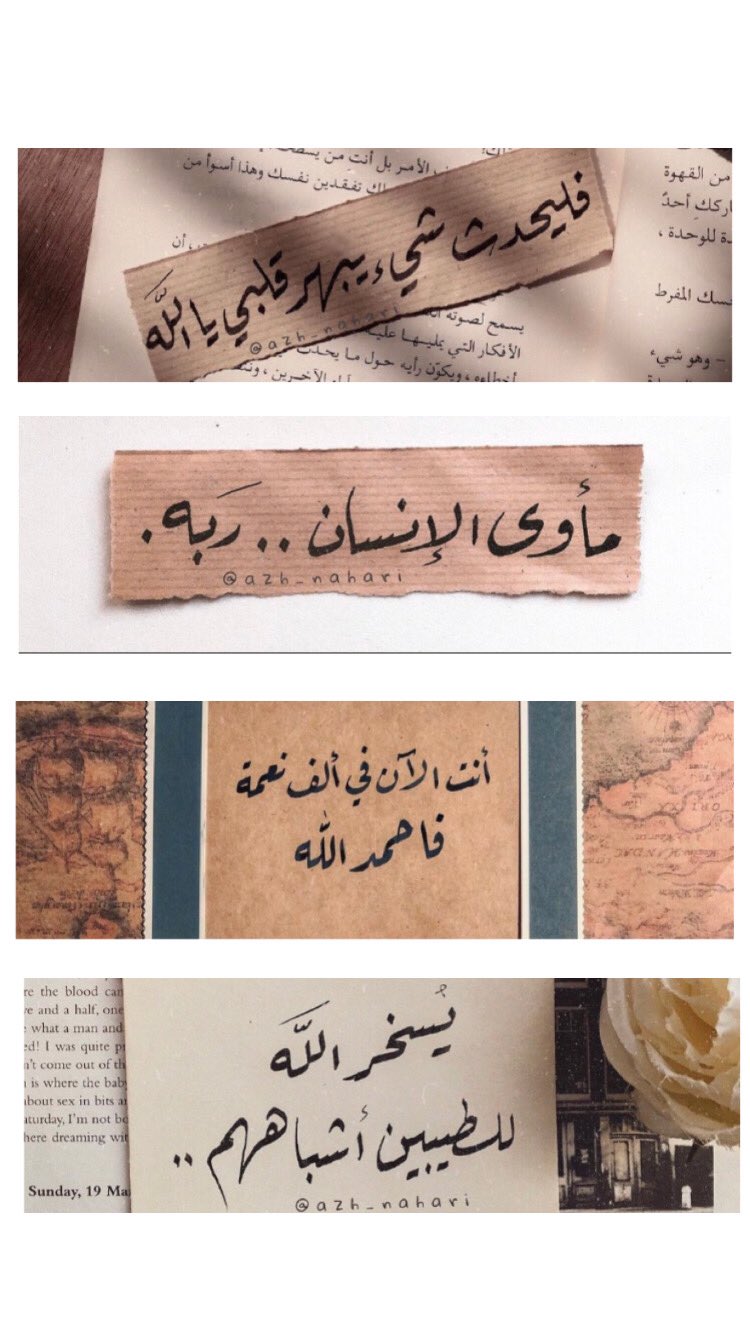 الأمر بل أنت من
تفقدين نفسك وهذا أسوأ من
من القهوة
أحدٌ
للوحدة ،
المفرط
– وهو شيء
فليحدث شيء يبهر قلبي يا الله
@azh_nahari
يسمح لصوته
الأفكار التي يمليها
أخطاءه ، ويكوّن رأيه حول ما يحدث
مأوى الإنسان .. ربه .
@azh_nahari
أنت الآن في ألف نعمة
فاحمد الله
re the blood can
ve and a half, one
what a man and
ed! I was quite
n't come out of th
is where the bab
about sex in bits a
aturday, I'm not b
here dreaming wit
Sunday, 19 Ma
يُسخر الله
للطيبين أشباههم ..
@azh_nahari